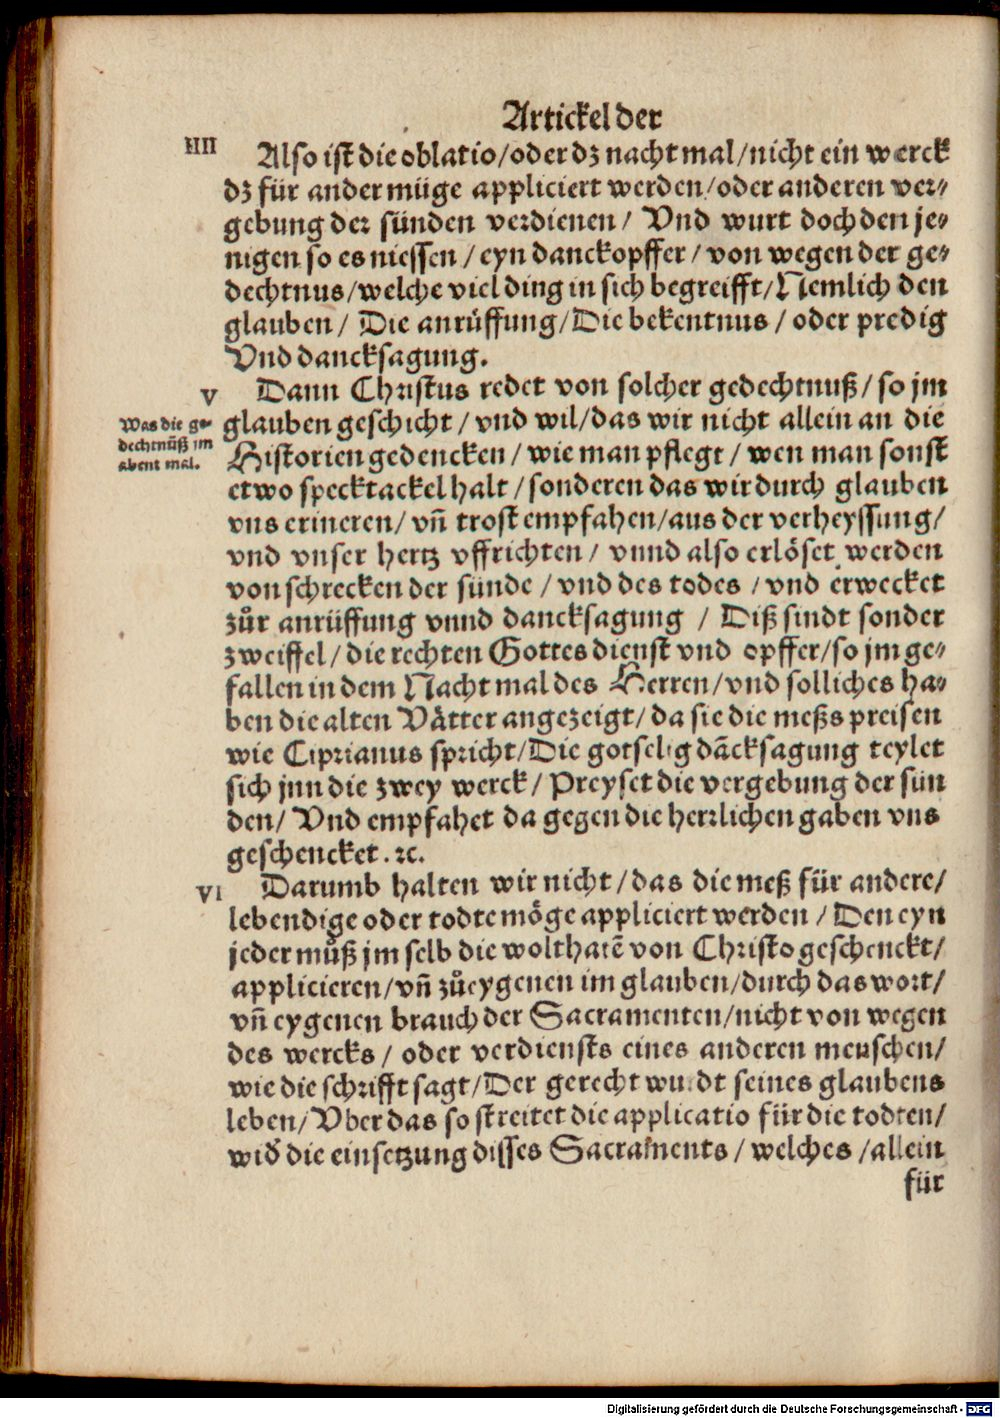 Artickel der
IIII
Also ist die oblatio/oder dz nachtmal/nicht ein werck
dz für ander müge appliciert werden/oder anderen ver⸗
gebung der sünden verdienen/ Vnd wurt doch den je⸗
nigen so es niessen/eyn danckopffer/von wegen der ge⸗
dechtnus/welche viel ding in sich begreifft/Nemlich den
glauben/ Die anrüffung/Die bekentnus/oder predig
Vnd dancksagung.
V
Dann Christus redet von solcher gedechtnuß/so jm
Was die ge⸗
dechtnüß im
abent mal.
glauben geschicht/vnd wil/das wir nicht allein an die
Historien gedencken/wie man pflegt/wen man sonst
etwo specktackel halt/sonderen das wir durch glauben
vns erineren/vñ trost empfahen/aus der verheyssung/
vnd vnser hertz vffrichten/ vnnd also erlöset werden
von schrecken der sünde/vnd des todes/vnd erwecket
zůr anrüffung vnnd dancksagung / Diß sindt sonder
zweiffel/die rechten Gottesdienst vnd opffer/so jm ge⸗
fallen in dem Nachtmal des Herren/vnd solliches ha⸗
ben die alten Vätter angezeigt/da sie die meßs preisen
wie Ciprianus spricht/Die gotselig dācksagung teylet
sich jnn die zwey werck/Preyset die vergebung der sün
den/ Vnd empfahet da gegen die herrlichen gaben vns
geschencket.ꝛc.
VI
Darumb halten wir nicht/das die meß für andere/
lebendige oder todte möge appliciert werden/Den eyn
jeder můß jm selb die wolthatē von Christo geschenckt/
applicieren/vñ zůeygenen im glauben/durch das wort/
vñ eygenen brauch der Sacramenten/nicht von wegen
des wercks/ oder verdiensts eines anderen menschen/
wie die schrifft sagt/Der gerecht wurdt seines glaubens
leben/Vber das so streitet die applicatio für die todten/
wid̕ die einsetzung disses Sacraments/welches/allein
für
Digitalisierung gefördert durch die Deutsche Forschungsgemeinschaft - DFG